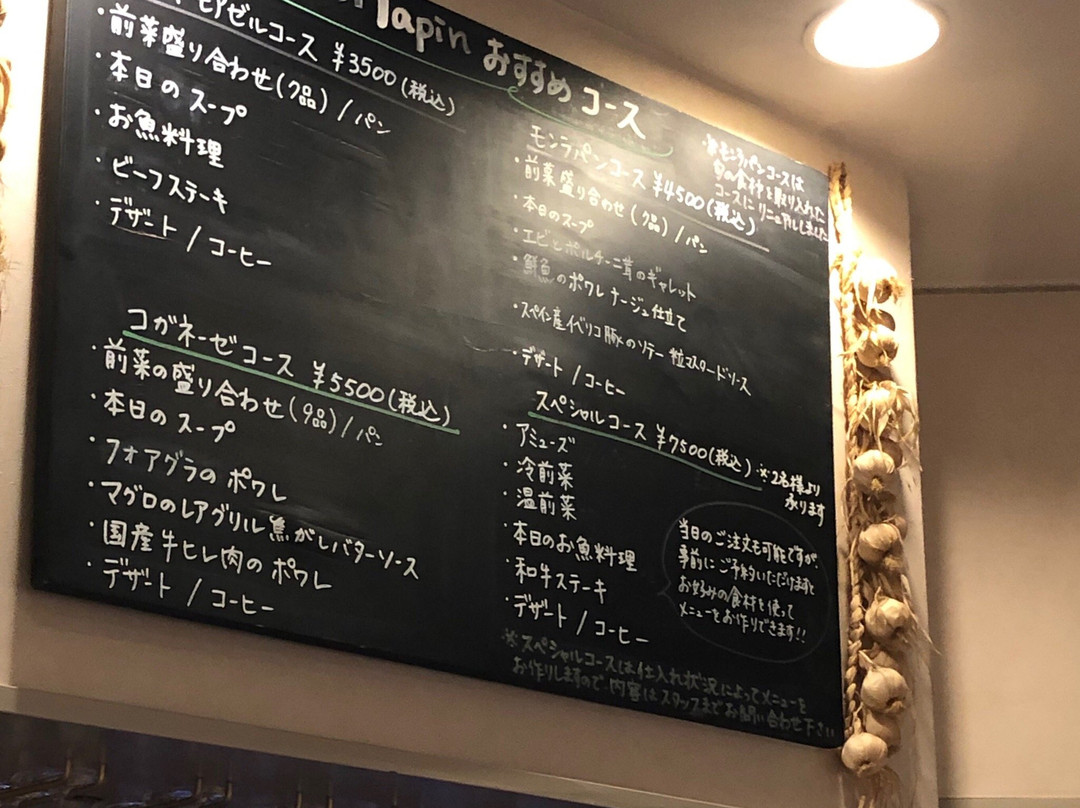 lapin おすすめ コース
ピアゼルコース ¥3500(税込)
・前菜盛り合わせ(7品) / パン
・本日の スープ
・お魚料理
・ビーフステーキ
・デザート / コーヒー
コガネーゼコース ¥5500(税込)
・前菜の盛り合わせ(9品) / パン
・本日の スープ
・フォアグラの ポワレ
・マグロのレアグリル 焦がしバターソース
・国産牛ヒレ肉の ポワレ
・デザート / コーヒー
モンラパンコース ¥4500(税込)
・前菜盛り合わせ (7品) / パン
・本日のスープ
・エビとポルチーニ茸のギャレット
・鮮魚のポワレ ナージュ仕立て
・スペイン産イベリコ豚のソテー 粒マスタードソース
・デザート / コーヒー
※モンラパンコースは
旬の食材を取り入れた
コースに リニューアルしました
スペシャルコース ¥7500(税込) ※2名様より
承ります
・アミューズ
・冷前菜
・温前菜
・本日のお魚料理
・和牛ステーキ
・デザート / コーヒー
当日のご注文も可能ですが、
事前に ご予約いただけますと
お好みの食材を使って
メニューをお作りできます!!
※スペシャルコースは仕入れ状況によってメニューを
お作りしますので、内容は スタッフまで お問い合わせ下さい